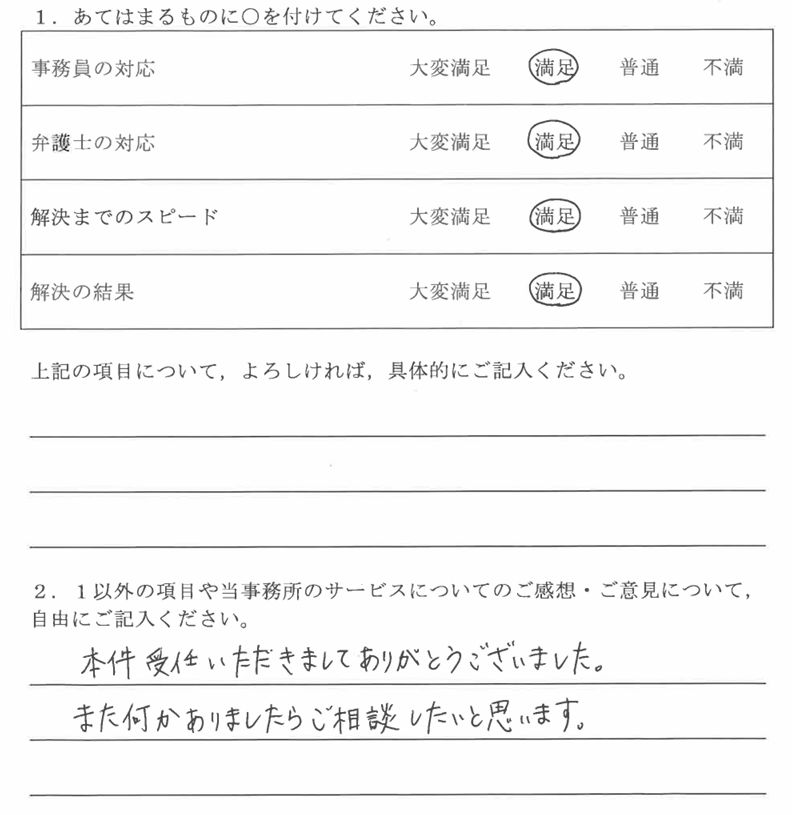 １．あてはまるものに〇を付けてください。
事務員の対応 大変満足 満足 普通 不満
弁護士の対応 大変満足 満足 普通 不満
解決までのスピード 大変満足 満足 普通 不満
解決の結果 大変満足 満足 普通 不満
上記の項目について，よろしければ，具体的にご記入ください。
２．１以外の項目や当事務所のサービスについてのご感想・ご意見について，
自由にご記入ください。
本件受任いただきましてありがとうございました。
また何かありましたらご相談したいと思います。